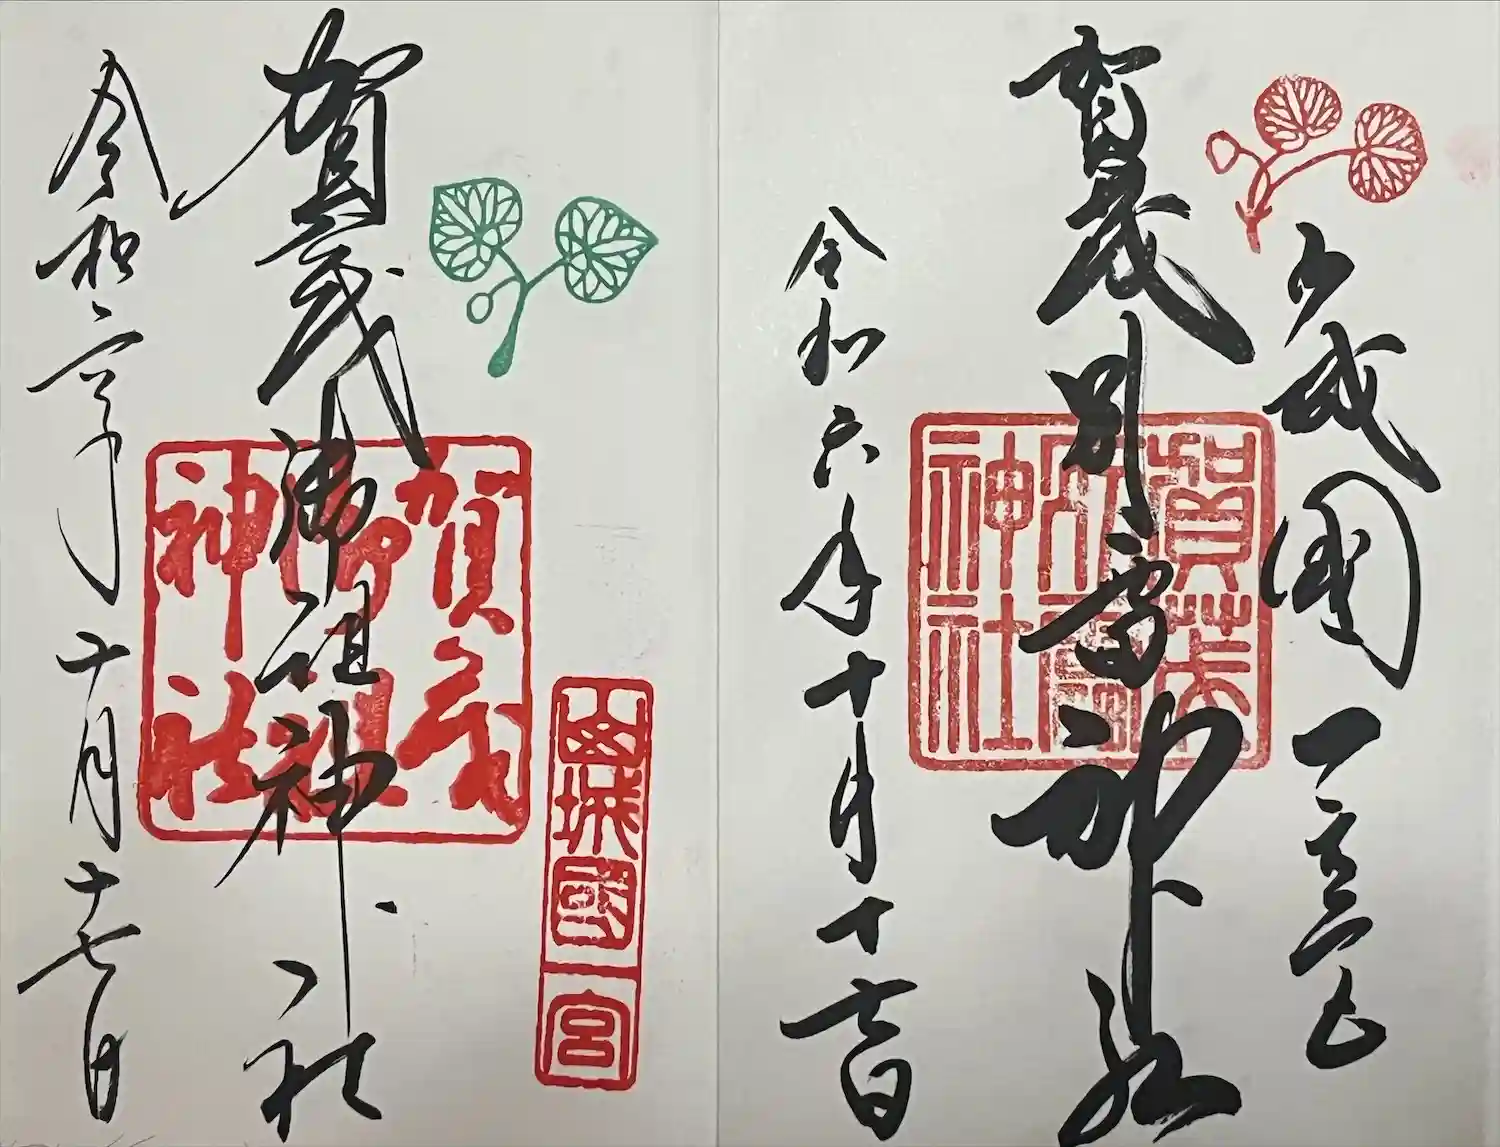 山城國一之宮
賀茂別雷神社
賀茂別雷神社
令和六年十月十七日
山城國一宮
賀茂御祖神社
賀茂御祖神社
令和六年十月十七日